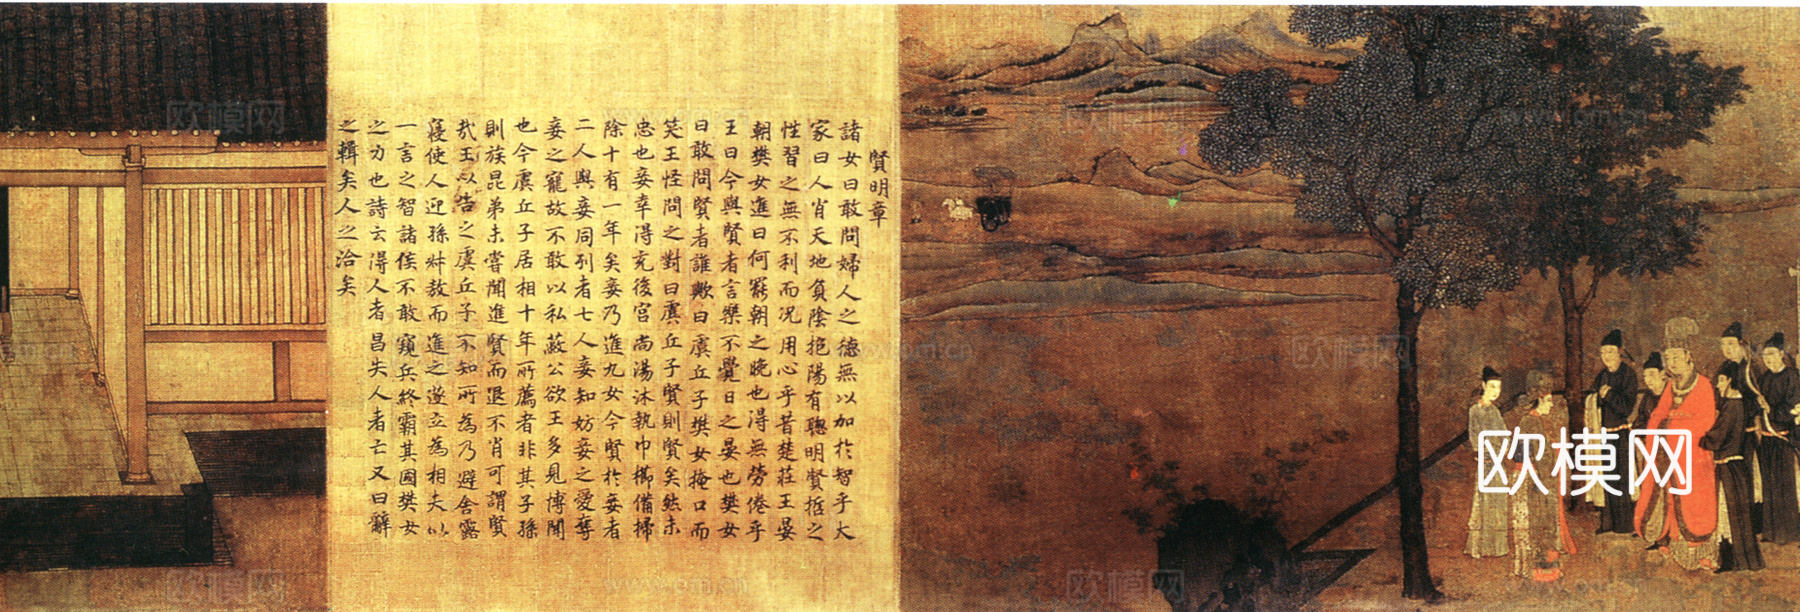 賢明章
諸女曰敢問婦人之德無以加於智乎大
家曰人肖天地負陰抱陽有聰明賢哲之
性習之無不利而況用心乎昔楚莊王晏
朝樊女進曰何罷朝之晚也得無勞倦乎
王曰今與賢者言樂不覺日之晏也樊女
曰敢問賢者誰歟曰虞丘子樊女掩口而
笑王怪問之對曰虞丘子賢則賢矣然未
忠也妾幸得充後宮尚湯沐執巾櫛備掃
除十有一年矣妾乃進九女今賢於妾者
二人與妾同列者七人妾知妨妾之愛奪
妾之寵故不敢以私蔽公欲王多見博聞
也今虞丘子居相十年所薦者非其子孫
則族昆弟未嘗聞進賢而退不肖可謂賢
哉王以告之虞丘子不知所為乃避舍露
寢使人迎孫叔敖而進之遂立為相夫以
一言之智諸侯不敢窺兵終霸其國樊女
之力也詩云得人者昌失人者亡又曰辭
之輯矣人之洽矣
欧模网